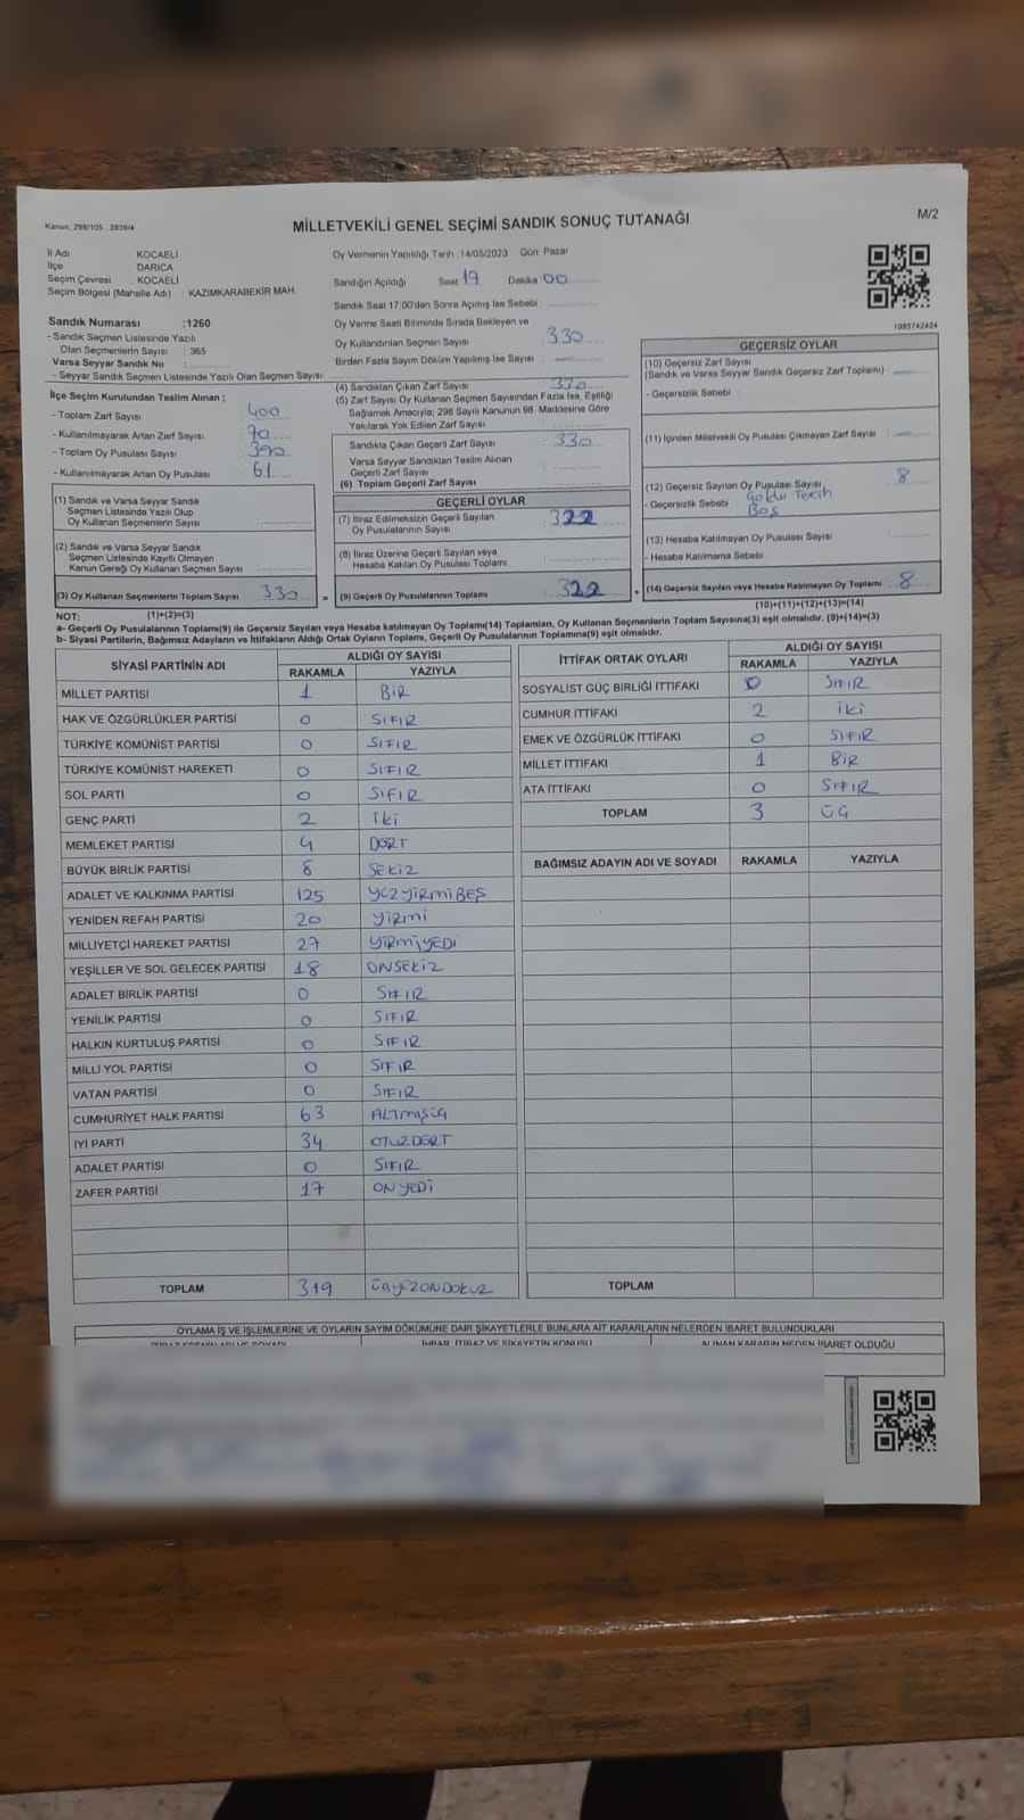 Kanun: 298/105 - 2839/4
MİLLETVEKİLİ GENEL SEÇİMİ SANDIK SONUÇ TUTANAĞI
M/2
İl Adı : KOCAELİ
İlçe : DARICA
Seçim Çevresi : KOCAELİ
Seçim Bölgesi (Mahalle Adı) : KAZIMKARABEKİR MAH.
Oy Vermenin Yapıldığı Tarih :14/05/2023 Gün: Pazar
Sandığın Açıldığı Saat 19 Dakika 00
Sandık Saat 17:00'den Sonra Açılmış İse Sebebi
Sandık Numarası :1260
- Sandık Seçmen Listesinde Yazılı
Olan Seçmenlerin Sayısı : 365
Varsa Seyyar Sandık No :
- Seyyar Sandık Seçmen Listesinde Yazılı Olan Seçmen Sayısı:
Oy Verme Saati Bitiminde Sırada Bekleyen ve
Oy Kullandırılan Seçmen Sayısı 330
Birden Fazla Sayım Döküm Yapılmış İse Sayısı
1085742424
İlçe Seçim Kurulundan Teslim Alınan :
- Toplam Zarf Sayısı 400
- Kullanılmayarak Artan Zarf Sayısı 70
- Toplam Oy Pusulası Sayısı 390
- Kullanılmayarak Artan Oy Pusulası 61
(1) Sandık ve Varsa Seyyar Sandık
Seçmen Listesinde Yazılı Olup
Oy Kullanan Seçmenlerin Sayısı
(2) Sandık ve Varsa Seyyar Sandık
Seçmen Listesinde Kayıtlı Olmayan
Kanun Gereği Oy Kullanan Seçmen Sayısı
(3) Oy Kullanan Seçmenlerin Toplam Sayısı 330 =
(1)+(2)=(3)
(4) Sandıktan Çıkan Zarf Sayısı 330
(5) Zarf Sayısı Oy Kullanan Seçmen Sayısından Fazla İse, Eşitliği
Sağlamak Amacıyla; 298 Sayılı Kanunun 98. Maddesine Göre
Yakılarak Yok Edilen Zarf Sayısı
Sandıkta Çıkan Geçerli Zarf Sayısı 330
Varsa Seyyar Sandıktan Teslim Alınan
Geçerli Zarf Sayısı
(6) Toplam Geçerli Zarf Sayısı
GEÇERLİ OYLAR
(7) İtiraz Edilmeksizin Geçerli Sayılan
Oy Pusulalarının Sayısı 322
(8) İtiraz Üzerine Geçerli Sayılan veya
Hesaba Katılan Oy Pusulası Toplamı
(9) Geçerli Oy Pusulalarının Toplamı 322 +
GEÇERSİZ OYLAR
(10) Geçersiz Zarf Sayısı
(Sandık ve Varsa Seyyar Sandık Geçersiz Zarf Toplamı)
- Geçersizlik Sebebi
(11) İçinden Milletvekili Oy Pusulası Çıkmayan Zarf Sayısı
(12) Geçersiz Sayılan Oy Pusulası Sayısı 8
- Geçersizlik Sebebi
Boş
(13) Hesaba Katılmayan Oy Pusulası Sayısı
- Hesaba Katılmama Sebebi
(14) Geçersiz Sayılan veya Hesaba Katılmayan Oy Toplamı 8
(10)+(11)+(12)+(13)=(14)
NOT:
a- Geçerli Oy Pusulalarının Toplamı(9) ile Geçersiz Sayılan veya Hesaba katılmayan Oy Toplamı(14) Toplamları, Oy Kullanan Seçmenlerin Toplam Sayısına(3) eşit olmalıdır. (9)+(14)=(3)
b- Siyasi Partilerin, Bağımsız Adayların ve İttifakların Aldığı Ortak Oyların Toplamı, Geçerli Oy Pusulalarının Toplamına(9) eşit olmalıdır.
SİYASİ PARTİNİN ADI ALDIĞI OY SAYISI
RAKAMLA YAZIYLA
MİLLET PARTİSİ 1 BİR
HAK VE ÖZGÜRLÜKLER PARTİSİ 0 SIFIR
TÜRKİYE KOMÜNİST PARTİSİ 0 SIFIR
TÜRKİYE KOMÜNİST HAREKETİ 0 SIFIR
SOL PARTİ 0 SIFIR
GENÇ PARTİ 2 İKİ
MEMLEKET PARTİSİ 4 DÖRT
BÜYÜK BİRLİK PARTİSİ 8 SEKİZ
ADALET VE KALKINMA PARTİSİ 125 YÜZYİRMİBEŞ
YENİDEN REFAH PARTİSİ 20 YİRMİ
MİLLİYETÇİ HAREKET PARTİSİ 27 YİRMİYEDİ
YEŞİLLER VE SOL GELECEK PARTİSİ 18 ONSEKİZ
ADALET BİRLİK PARTİSİ 0 SIFIR
YENİLİK PARTİSİ 0 SIFIR
HALKIN KURTULUŞ PARTİSİ 0 SIFIR
MİLLİ YOL PARTİSİ 0 SIFIR
VATAN PARTİSİ 0 SIFIR
CUMHURİYET HALK PARTİSİ 63 ALTMIŞÜÇ
İYİ PARTİ 34 OTUZDÖRT
ADALET PARTİSİ 0 SIFIR
ZAFER PARTİSİ 17 ONYEDİ
TOPLAM 319 ÜÇYÜZONDOKUZ
İTTİFAK ORTAK OYLARI ALDIĞI OY SAYISI
RAKAMLA YAZIYLA
SOSYALİST GÜÇ BİRLİĞİ İTTİFAKI 0 SIFIR
CUMHUR İTTİFAKI 2 İKİ
EMEK VE ÖZGÜRLÜK İTTİFAKI 0 SIFIR
MİLLET İTTİFAKI 1 BİR
ATA İTTİFAKI 0 SIFIR
TOPLAM 3 ÜÇ
BAĞIMSIZ ADAYIN ADI VE SOYADI RAKAMLA YAZIYLA
TOPLAM
OYLAMA İŞ VE İŞLEMLERİNE VE OYLARIN SAYIM DÖKÜMÜNE DAİR ŞİKAYETLERLE BUNLARA AİT KARARLARIN NELERDEN İBARET BULUNDUKLARI
İHBAR, İTİRAZ VE ŞİKAYETİN KONUSU ALINAN KARARIN NEDEN İBARET OLDUĞU